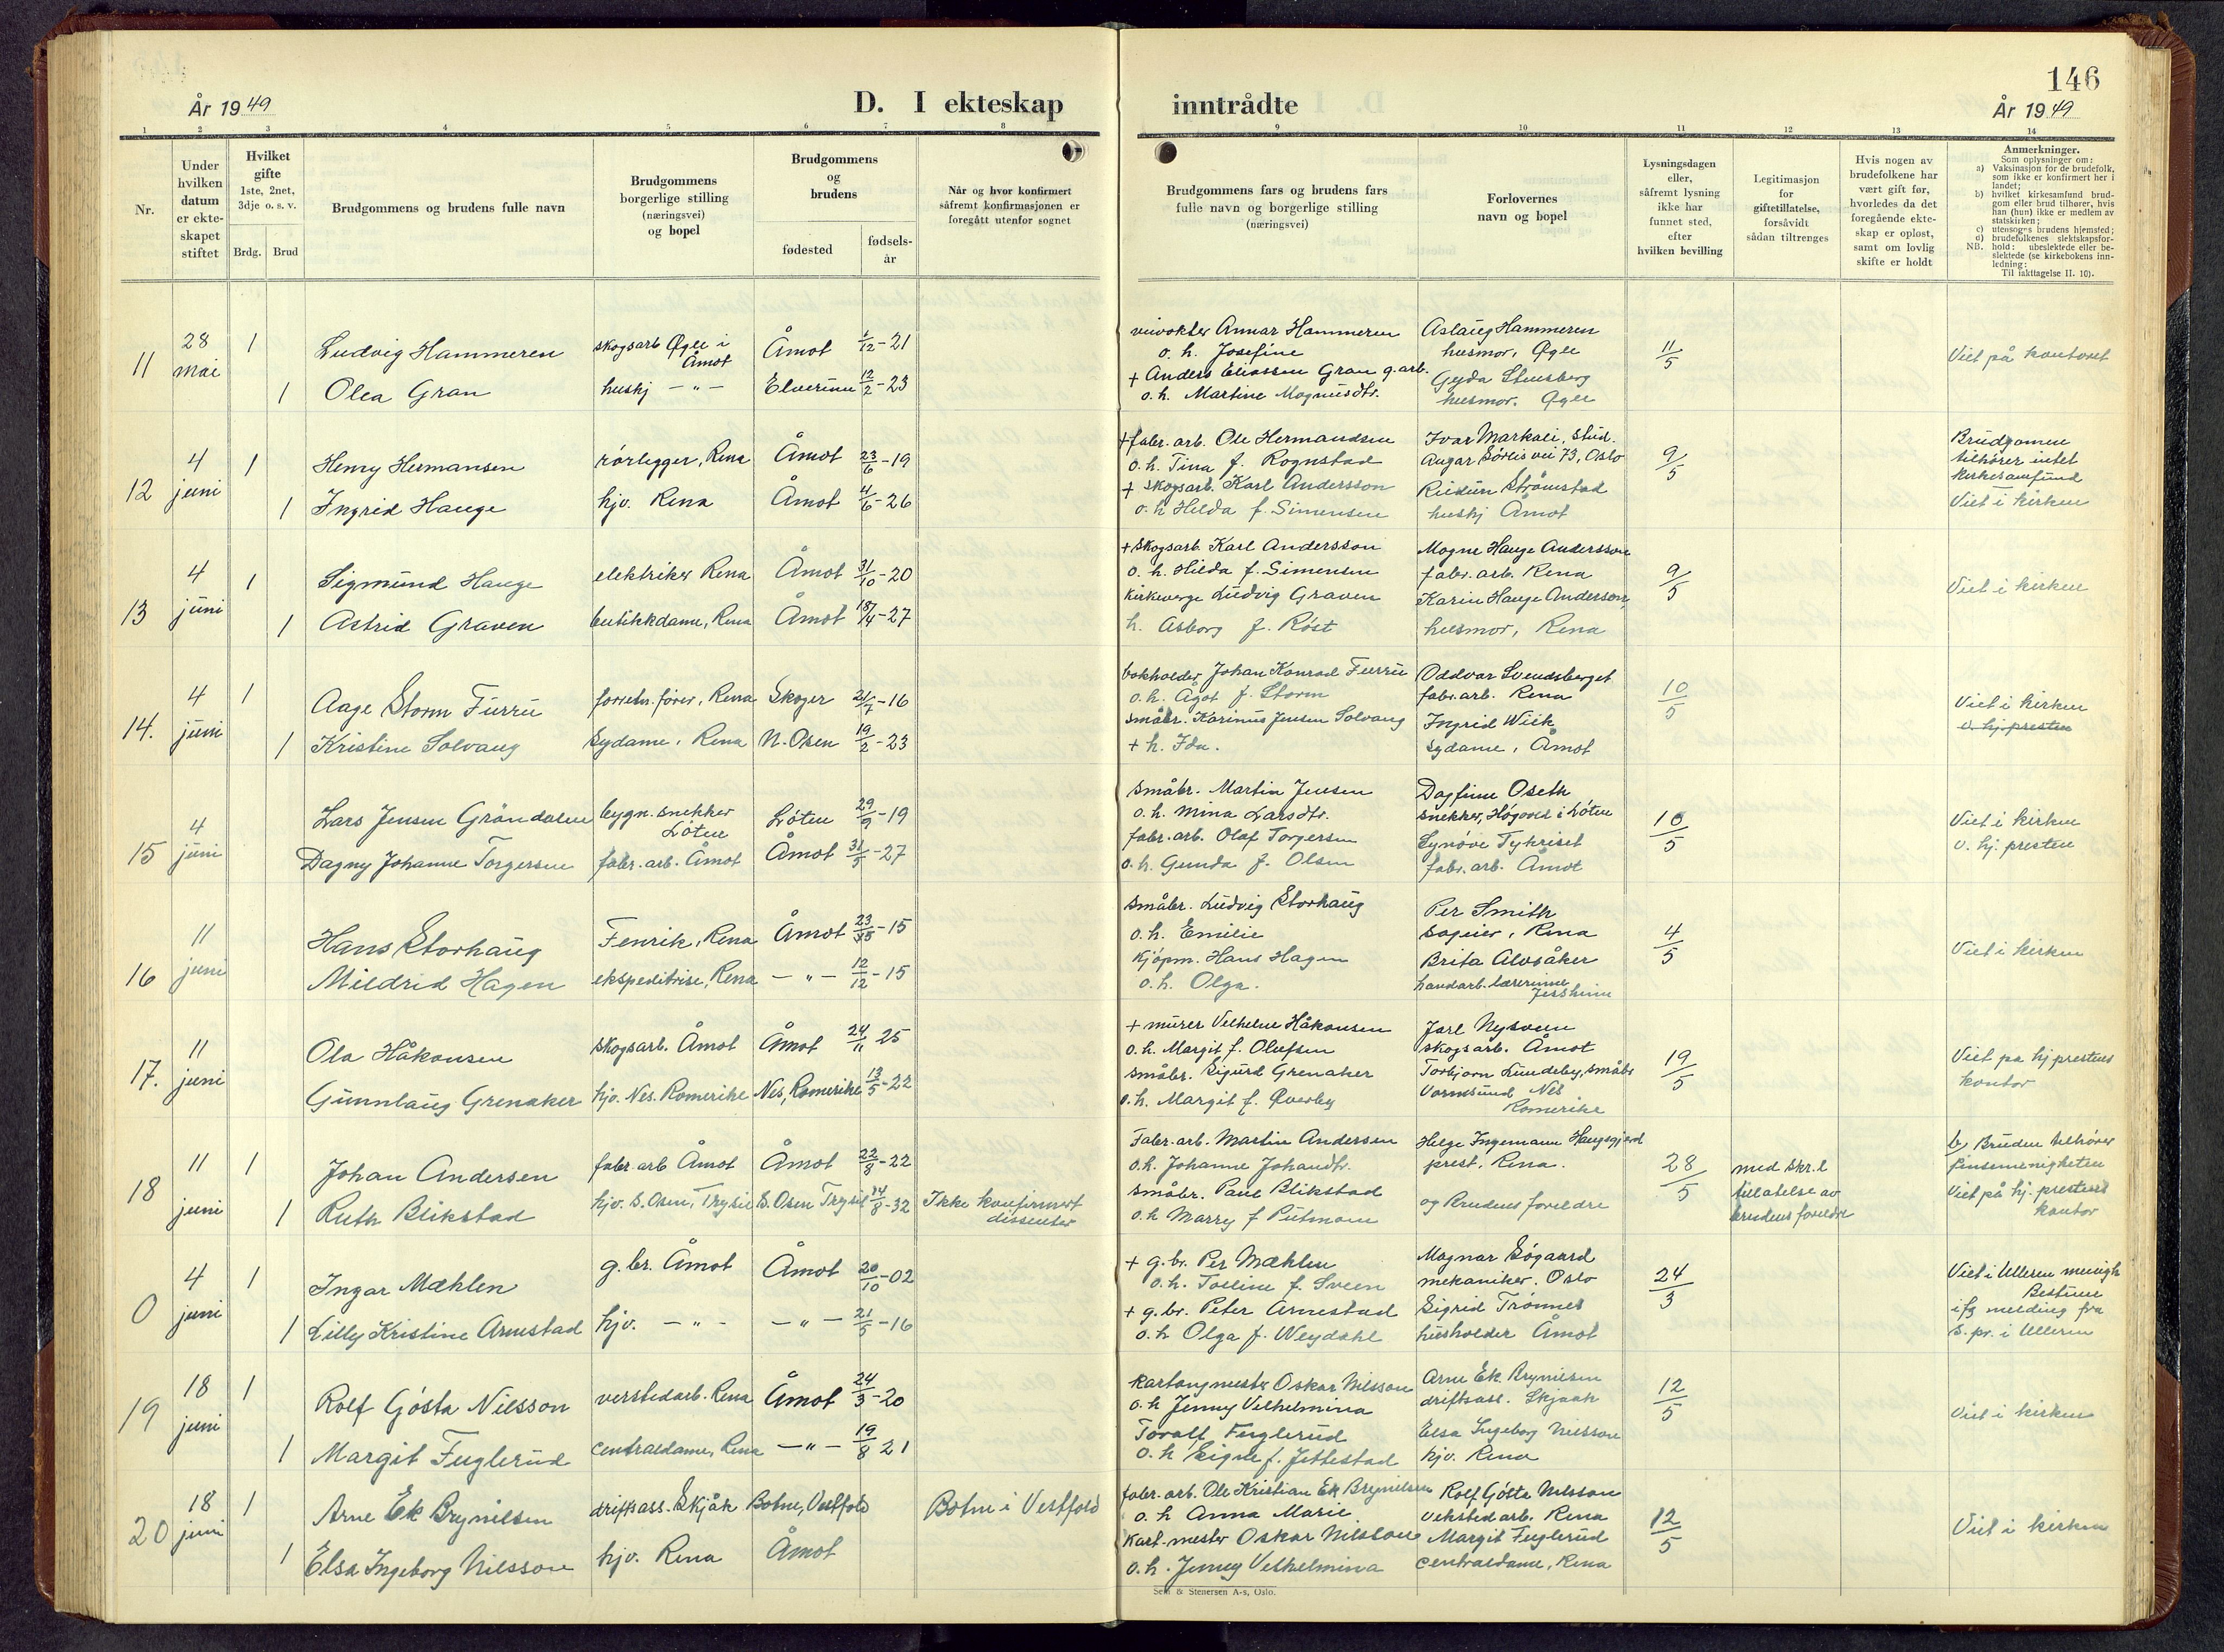 146
År 1949
D. I ekteskap
inntrådte
År 1949
1 2 3 4 5 6 7 8 9 10 11 12 13 14
Nr.
Under
hvilken
datum
er ekte-
skapet
stiftet
Hvilket
gifte
1ste, 2net,
3dje o. s. v.
Brdg. Brud
Brudgommens og brudens fulle navn
Brudgommens
borgerlige stilling
(næringsvei)
og bopel
Brudgommens
og
brudens
fødested
fødsels-
år
Når og hvor konfirmert
såfremt konfirmasjonen er
foregått utenfor sognet
Brudgommens fars og brudens fars
fulle navn og borgerlige stilling
(næringsvei)
Forlovernes
navn og bopel
Lysningsdagen
eller,
såfremt lysning
ikke har
funnet sted,
efter
hvilken bevilling
Legitimasjon
for
giftetillatelse,
forsåvidt
sådan tiltrenges
Hvis nogen av
brudefolkene har
vært gift før,
hvorledes da det
foregående ekte-
skap er opløst,
samt om lovlig
skifte er holdt
Anmerkninger.
Som oplysninger om:
a) Vaksinasjon for de brudefolk,
som ikke er konfirmert her i
landet;
b) hvilket kirkesamfund brud-
gom eller brud tilhører, hvis
han (hun) ikke er medlem av
statskirken;
c) utensogns brudens hjemsted;
d) brudefolkenes slektskapsfor-
hold: ubeslektede eller be-
slektede (se kirkebokens inn-
ledning:
NB. Til iakttagelse II. 10).
11
28
mai
1
Ludvig Hammeren
skogsarb Øgle i
Åmot
Åmot
1/12-21
veivokter Annar Hammeren
o. h. Josefine
Aslaug Hammeren
husmor, Øgle
11/5
Viet på kontoret
1
Olea Gran
hushj - " -
Elverum
12/2-23
+ Anders Eliassen Gran g.arb.
o.h. Martine Magnusdtr.
Gyda Stensberg
husmor. Øgle
12
4
juni
1
Henry Hermansen
rørlegger, Rena
Åmot
23/6-19
+ fabr. arb. Ole Hermandsen
o.h. Tina f. Rognstad
Ivar Markali, stud.
Augar Sørlis vei 73, Oslo
9/5
Brudgomen
tilhører intet
kirkesamfund
Viet i kirken
1
Ingrid Hauge
hjv. Rena
Åmot
4/6-26
+ skogsarb. Karl Andersson
o.h Hilda f. Simensen
Reidun Strømstad
hushj Åmot
13
4
juni
1
Sigmund Hauge
elektriker Rena
Åmot
31/10-20
+ skogsarb. Karl Andersson
o. h. Hilda f. Simensen
Mogne Hauge Andersson
fabr. arb. Rena
9/5
Viet i kirken
1
Astrid Graven
butikkdame, Rena
Åmot
18/4-27
kirkeverge Ludvig Graven
h. Asborg f. Røst
Karin Hauge Anderson,
husmor, Rena
14.
4
juni
1
Aage Storm Furru
forretn.fører, Rena
Skoger
21/7-16
bokholder Johan Konrad Furru
o.h. Ågot f. Storm
Oddvar Svendsberget
fabr.arb. Rena
10/5
Viet i kirken
v. hj. presten
1
Kristine Solvang
sydame, Rena
N. Osen
19/2-23
småbr. Karinus Jensen Solvang
+ h. Ida.
Ingrid Wiik
sydame, Åmot
15
4
juni
Lars Jensen Grøndalen
bygn.snekker
Løten
Løten
29/9-19
småbr. Martin Jensen
o.h. Mina Larsdtr.
Dagfinn Oseth
snekker, Høgvoll i Løten
10/5
Viet i kirken
v. hj. presten
Dagny Johanne Torgersen
fabr. arb. Åmot
Åmot
31/5-27
fabr. arb. Olaf Torgersen
o.h. Gunda f. Olsen
Synøve Tyhriset
fabr. arb. Åmot
16
11
juni
Hans Storhaug
Fenrik, Rena
Åmot
-15
småbr. Ludvig Storhaug
o.h. Emilie
Per Smith
sageier, Rena
4/5
Viet i kirken
Mildrid Hagen
ekspeditrise, Rena
- " -
12/12-15
kjøpm. Hans Hagen
o.h. Olga.
Brita Alvsåker
handarb. lærerinne
Jessheim
17.
11
juni
Ola Håkonsen
skogsarb. Åmot
Åmot
24/11 25
+ murer Vilhelm Håkonsen
o.h. Margit f. Olufsen
Jarl Nysveen
skogsarb. Åmot
19/5
Viet på hj prestens
kontor
Gunnlaug Grenaker
hjv. Nes. Romerike
Nes, Romerike
13/5-22
småbr. Sigurd Grenaker
o.h. Margit f. Øverby
Torbjørn Lundeby, småbr
Vormsund Nes
Romerike
18
11
juni
1
Johan Andersen
fabr. arb Åmot
Åmot
22/8-22
Fabr. arb. Martin Andersen
o.h. Johanne Johandtr.
Helge Ingemann Haugsgjerd
prest, Rena.
28/5
med skr.l
tillatelse av
brudens foreldre
b, Bruden tilhører
pinsemenigheten
Viet på hj. prestens
kontor
1
Ruth Blikstad
hjv. S. Osen, Trysil
S. Osen Trysil
14/8-32
Ikke konfirmert
dissenter
småbr. Paul Blikstad
o.h Marry f Putmann
og Brudens foreldre
0
4
juni
1
Ingar Mæhlen
g. br. Åmot
Åmot
20/10-02
+ g.br. Per Mæhlen
o.h. Talline f. Sveen
Magnar Søgaard
mekaniker. Oslo
24/3
Viet i Ulleren menigh
Bestum
ifg melding fra
s.pr. i Ulleren
1
Lilly Kristine Arnestad
hjv. - " -
- " -
21/5-16
+ g. br. Peter Arnestad
o.h Olga f. Weydahl
Sigrid Trønnes
husholder Åmot
19
18
juni
1
Rolf Gösta Nilsson
verstedarb. Rena
Åmot
24/3-20
kartongmester Oskar Nilsson
o.h Jenny Vilhelmina
Arne Ek Brynilsen
driftsass. Skjaak
12/5
Viet i kirken
1
Margit Fuglerud
centraldame, Rena
- " -
19/8 21
Toralf Fuglerud
o.h Signe f. Jettestad
Elsa Ingeborg Nilsson
hjv. Rena
20
18
juni
1
Arne Ek Brynilsen
driftsass. Skjåk
Botne, Vestfold
Botne i Vestfold
fabr. arb. Ole Kristian Ek Brynilsen
o. h Anna Marie
Rolf Gösta Nilsson
verksted arb. Rena
12/5
Viet i kirken
1
Elsa Ingeborg Nilsson
hjv. Rena
Åmot
kart. mester Oskar Nilsson
o.h. Jenny Vilhelmina
Margit Fuglerud
centraldame, Rena
Sem & Stenersen A-s, Oslo.